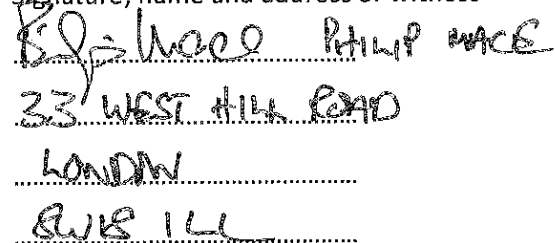 Signature, name and address of witness
Philip Mace PHILIP MACE
33 WEST HILL ROAD
LONDON
SW18 1LL